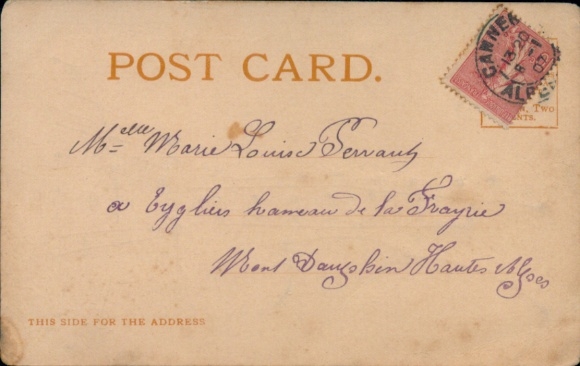 POST CARD.
CANNES
13 20
ALP
Two
CENTS.
Melle Marie Louise Serrant
a Eygliers hameau de la Frayrie
Mont Dauphin Hautes Alpes
THIS SIDE FOR THE ADDRESS